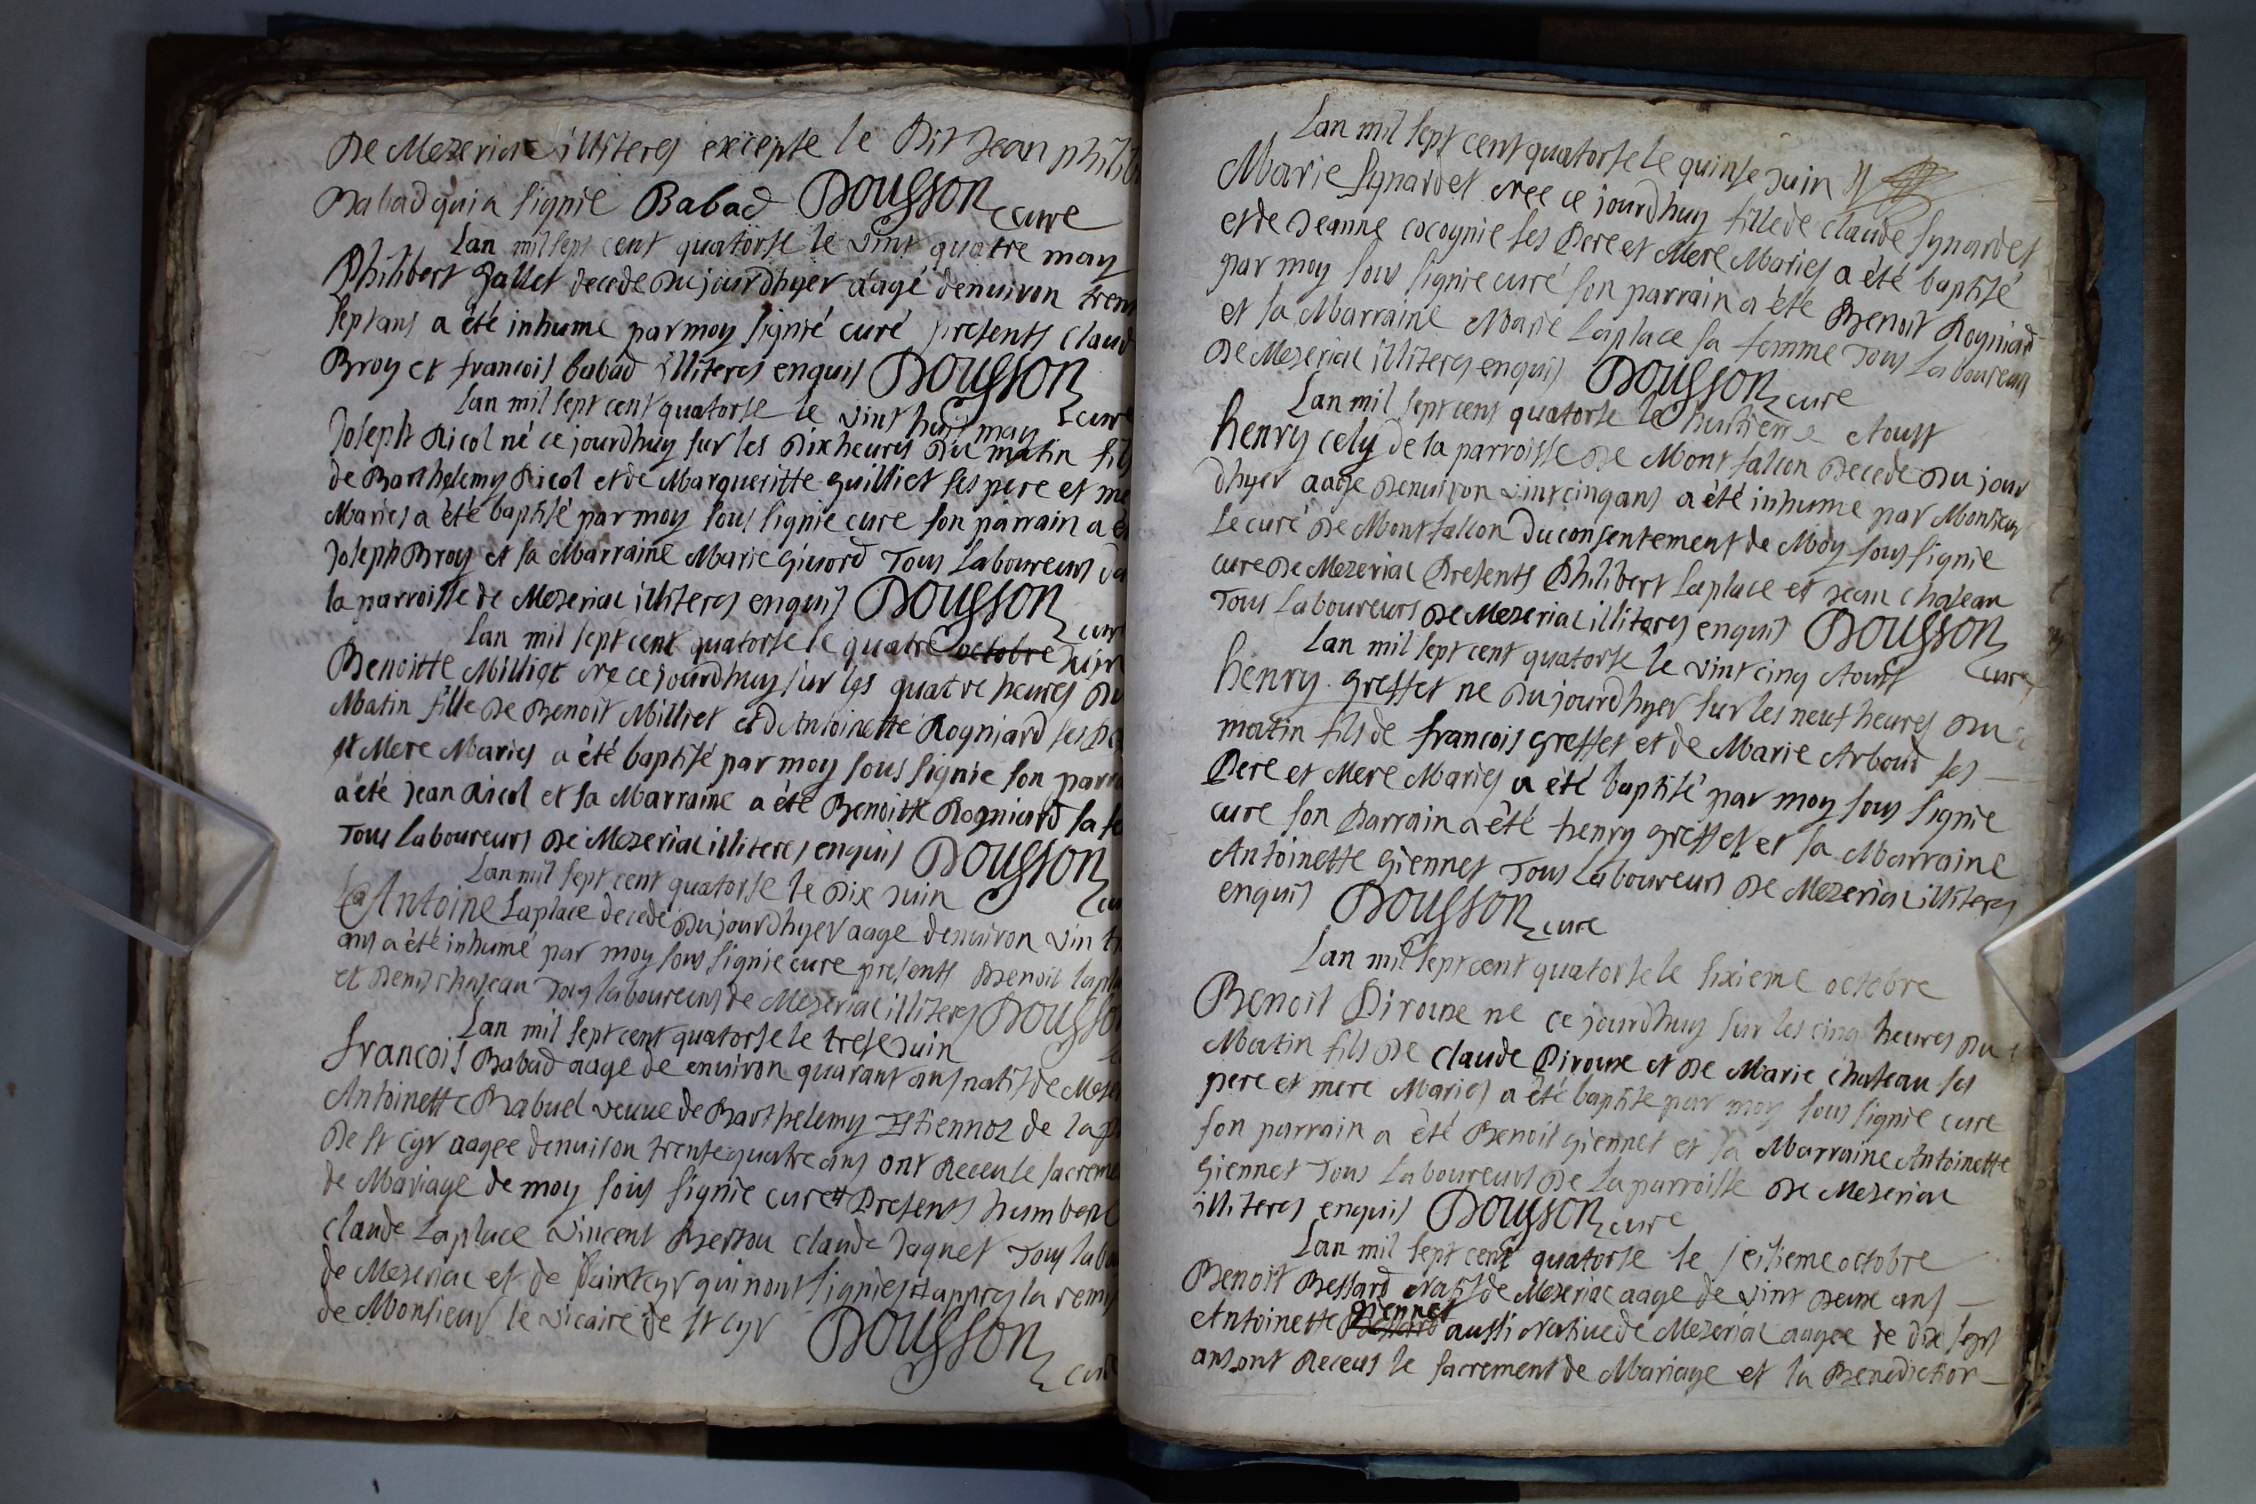 De Mezeriac illiteres excepte le Dit Jean philib
Babad qui a signie Babad Dousson cure
Lan mil sept cent quatorse le vint quatre may
Philibert Gallet decede Du jourdhyer aagé denuiron trent
sept ans a été inhume par moy signié curé presents Claud
Broy et francois babad illiteres enquis Dousson cure
Lan mil sept cent quatorse le vint huit may
Joseph Ricol né ce jourdhuy sur les Dix heures Du matin fils
de Barthelemy Ricol et de Margueritte Guilliet ses pere et me
Maries a été baptisé par moy sous signie cure son parrain a é
Joseph Broy et sa Marraine Marie Givord Tous Laboureurs de
la parroisse de Mezeriac illiteres enquis Dousson cure
Lan mil sept cent quatorse le quatre octobre Juin
Benoitte Milliet née ce jourdhuy sur les quatre heures Du
Matin fille De Benoit Milliet et d Antoinette Rogniard ses Pe
et Mere Maries a été baptisé par moy sous signie son parra
a été Jean Ricol et sa Marraine a été Benoitte Rogniard sa fe
Tous laboureurs De Mezeriac illiteres enquis Dousson cu
Lan mil sept cent quatorse le Dix Juin
Antoine Laplace decedé Du jourdhyer aage denuiron vin tr
ans a été inhumé par moy sous signie cure presents Benoit lapla
et Denis chateau Tous laboureurs de Mezeriac illiteres Dousso
Lan mil sept cent quatorse le trese Juin
francois Babad aage de enuiron quarant ans natif de Mezer
Antoinette Rabuel veuue de Barthelemy Etiennoz de la p
De st Cyr aagee denuiron trente quatre ans ont Receu le sacreme
de Mariage de moy sous signie cure Presents humbert
claude Laplace vincent Bertou claude Jaquet Tous labou
de Mezeriac et de saint cyr qui nont signies appres la remis
de Monsieur le vicaire de st Cyr Dousson cure
Lan mil sept cent quatorse le quinse Juin
Marie Synardet née ce jourdhuy fille de claude Synardet
et de Jeanne cocognie ses Pere et Mere Maries a été baptisé
par moy sous signie curé son parrain a été Benoit Rogniard
et sa Marraine Marie Laplace sa femme Tous Laboureurs
De Mezeriac illiteres enquis Dousson cure
Lan mil sept cent quatorse le huitieme Aoust
henry cely de la parroisse De Montfalcon Decede Du jour
dhyer aage Denuiron vint cinq ans a été inhume par Monsieur
Le curé De Montfalcon du consentement de Moy sous signie
cure De Mezeriac Presents Philibert Laplace et Jean chateau
Tous Laboureurs De Mezeriac illiteres enquis Dousson cure
Lan mil sept cent quatorse le vint cinq Aoust
henry Greffet ne Du jourdhyer sur les neuf heures Du
matin fils de francois Greffet et de Marie Arboud ses
Pere et Mere Maries a été baptisé par moy sous signie
cure son Parrain a été henry Greffet et sa Marraine
Antoinette Giennet Tous Laboureurs De Mezeriac illiteres
enquis Dousson cure
Lan mil sept cent quatorse le sixieme octobre
Benoit Piroune ne ce jourdhuy sur les cinq heures Du
Matin fils De claude Piroune et De Marie chateau ses
pere et mere Maries a été baptise par moy sous signie cure
son parrain a été Benoit Giennet et sa Marraine Antoinette
Giennet Tous Laboureurs De La parroisse De Mezeriac
illiteres enquis Dousson cure
Lan mil sept cent quatorse le seisieme octobre
Benoit Bessard Natif de Mezeriac aage de vint Deux ans
Giennet
Antoinette Bessard aussi Natiue de Mezeriac aagee de dix sept
ans ont Receus le sacrement de Mariage et la Benediction